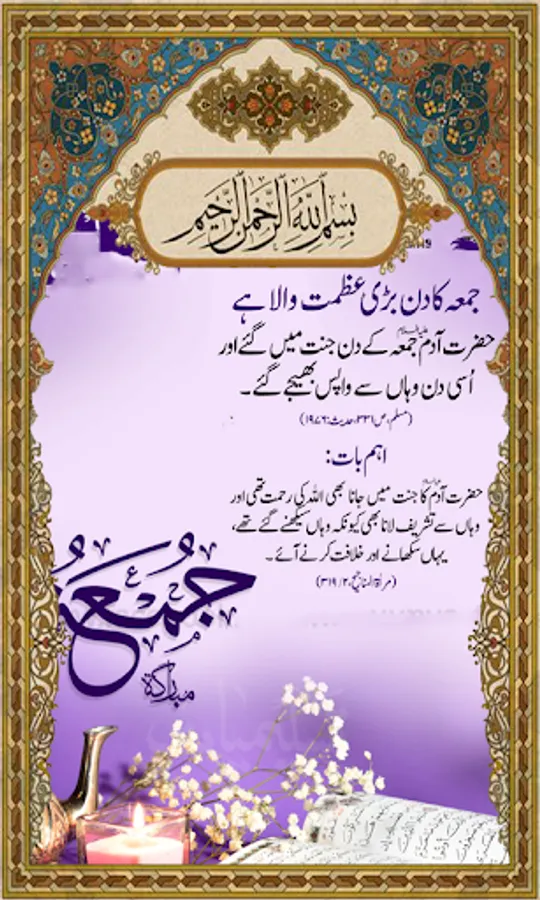 بسم اللہ الرحمن الرحیم
جمعہ کا دن بڑی عظمت والا ہے
حضرت آدم علیہ السلام جمعہ کے دن جنت میں گئے اور
اُسی دن وہاں سے واپس بھیجے گئے۔
(مسلم، ص۳۳۱، حدیث:۱۹۷۶)
اہم بات:
حضرت آدم علیہ السلام کا جنت میں جانا بھی اللہ کی رحمت تھی اور
وہاں سے تشریف لانا بھی کیونکہ وہاں سیکھنے گئے تھے،
یہاں سکھانے اور خلافت کرنے آئے۔
(مرأۃ المناجیح، ۲/ ۳۱۹)
جُمُعَة
مباركة